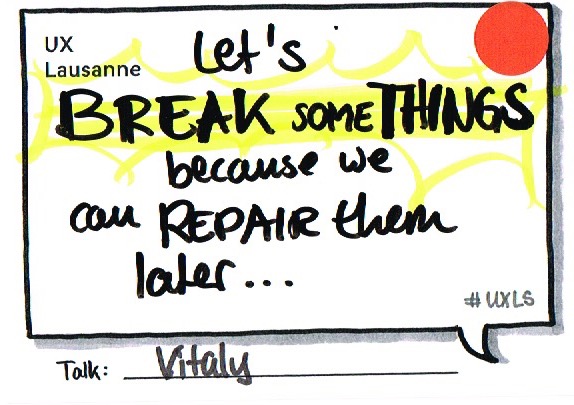 UX
Lausanne
Let's
BREAK SOME THINGS
because we
can REPAIR them
later...
#UXLS
Talk: Vitaly